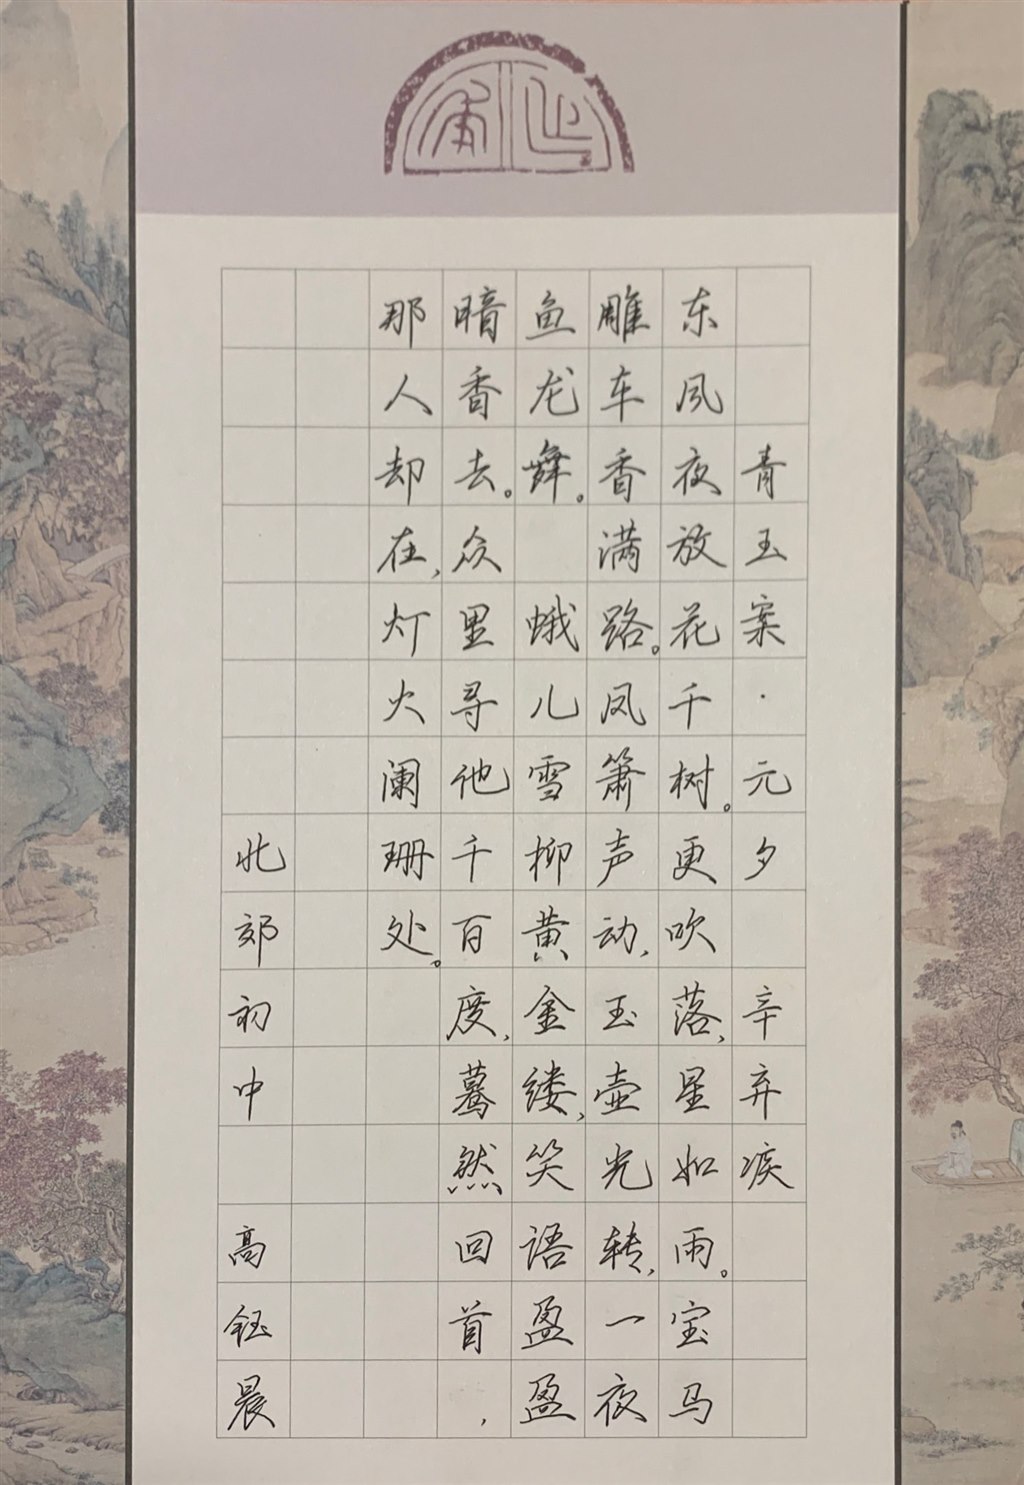 青玉案·元夕 辛弃疾
东风夜放花千树。更吹落,星如雨。宝马
雕车香满路。凤箫声动,玉壶光转,一夜
鱼龙舞。 蛾儿雪柳黄金缕,笑语盈盈
暗香去。众里寻他千百度,蓦然回首,
那人却在,灯火阑珊处。
北郊初中 高钰晨